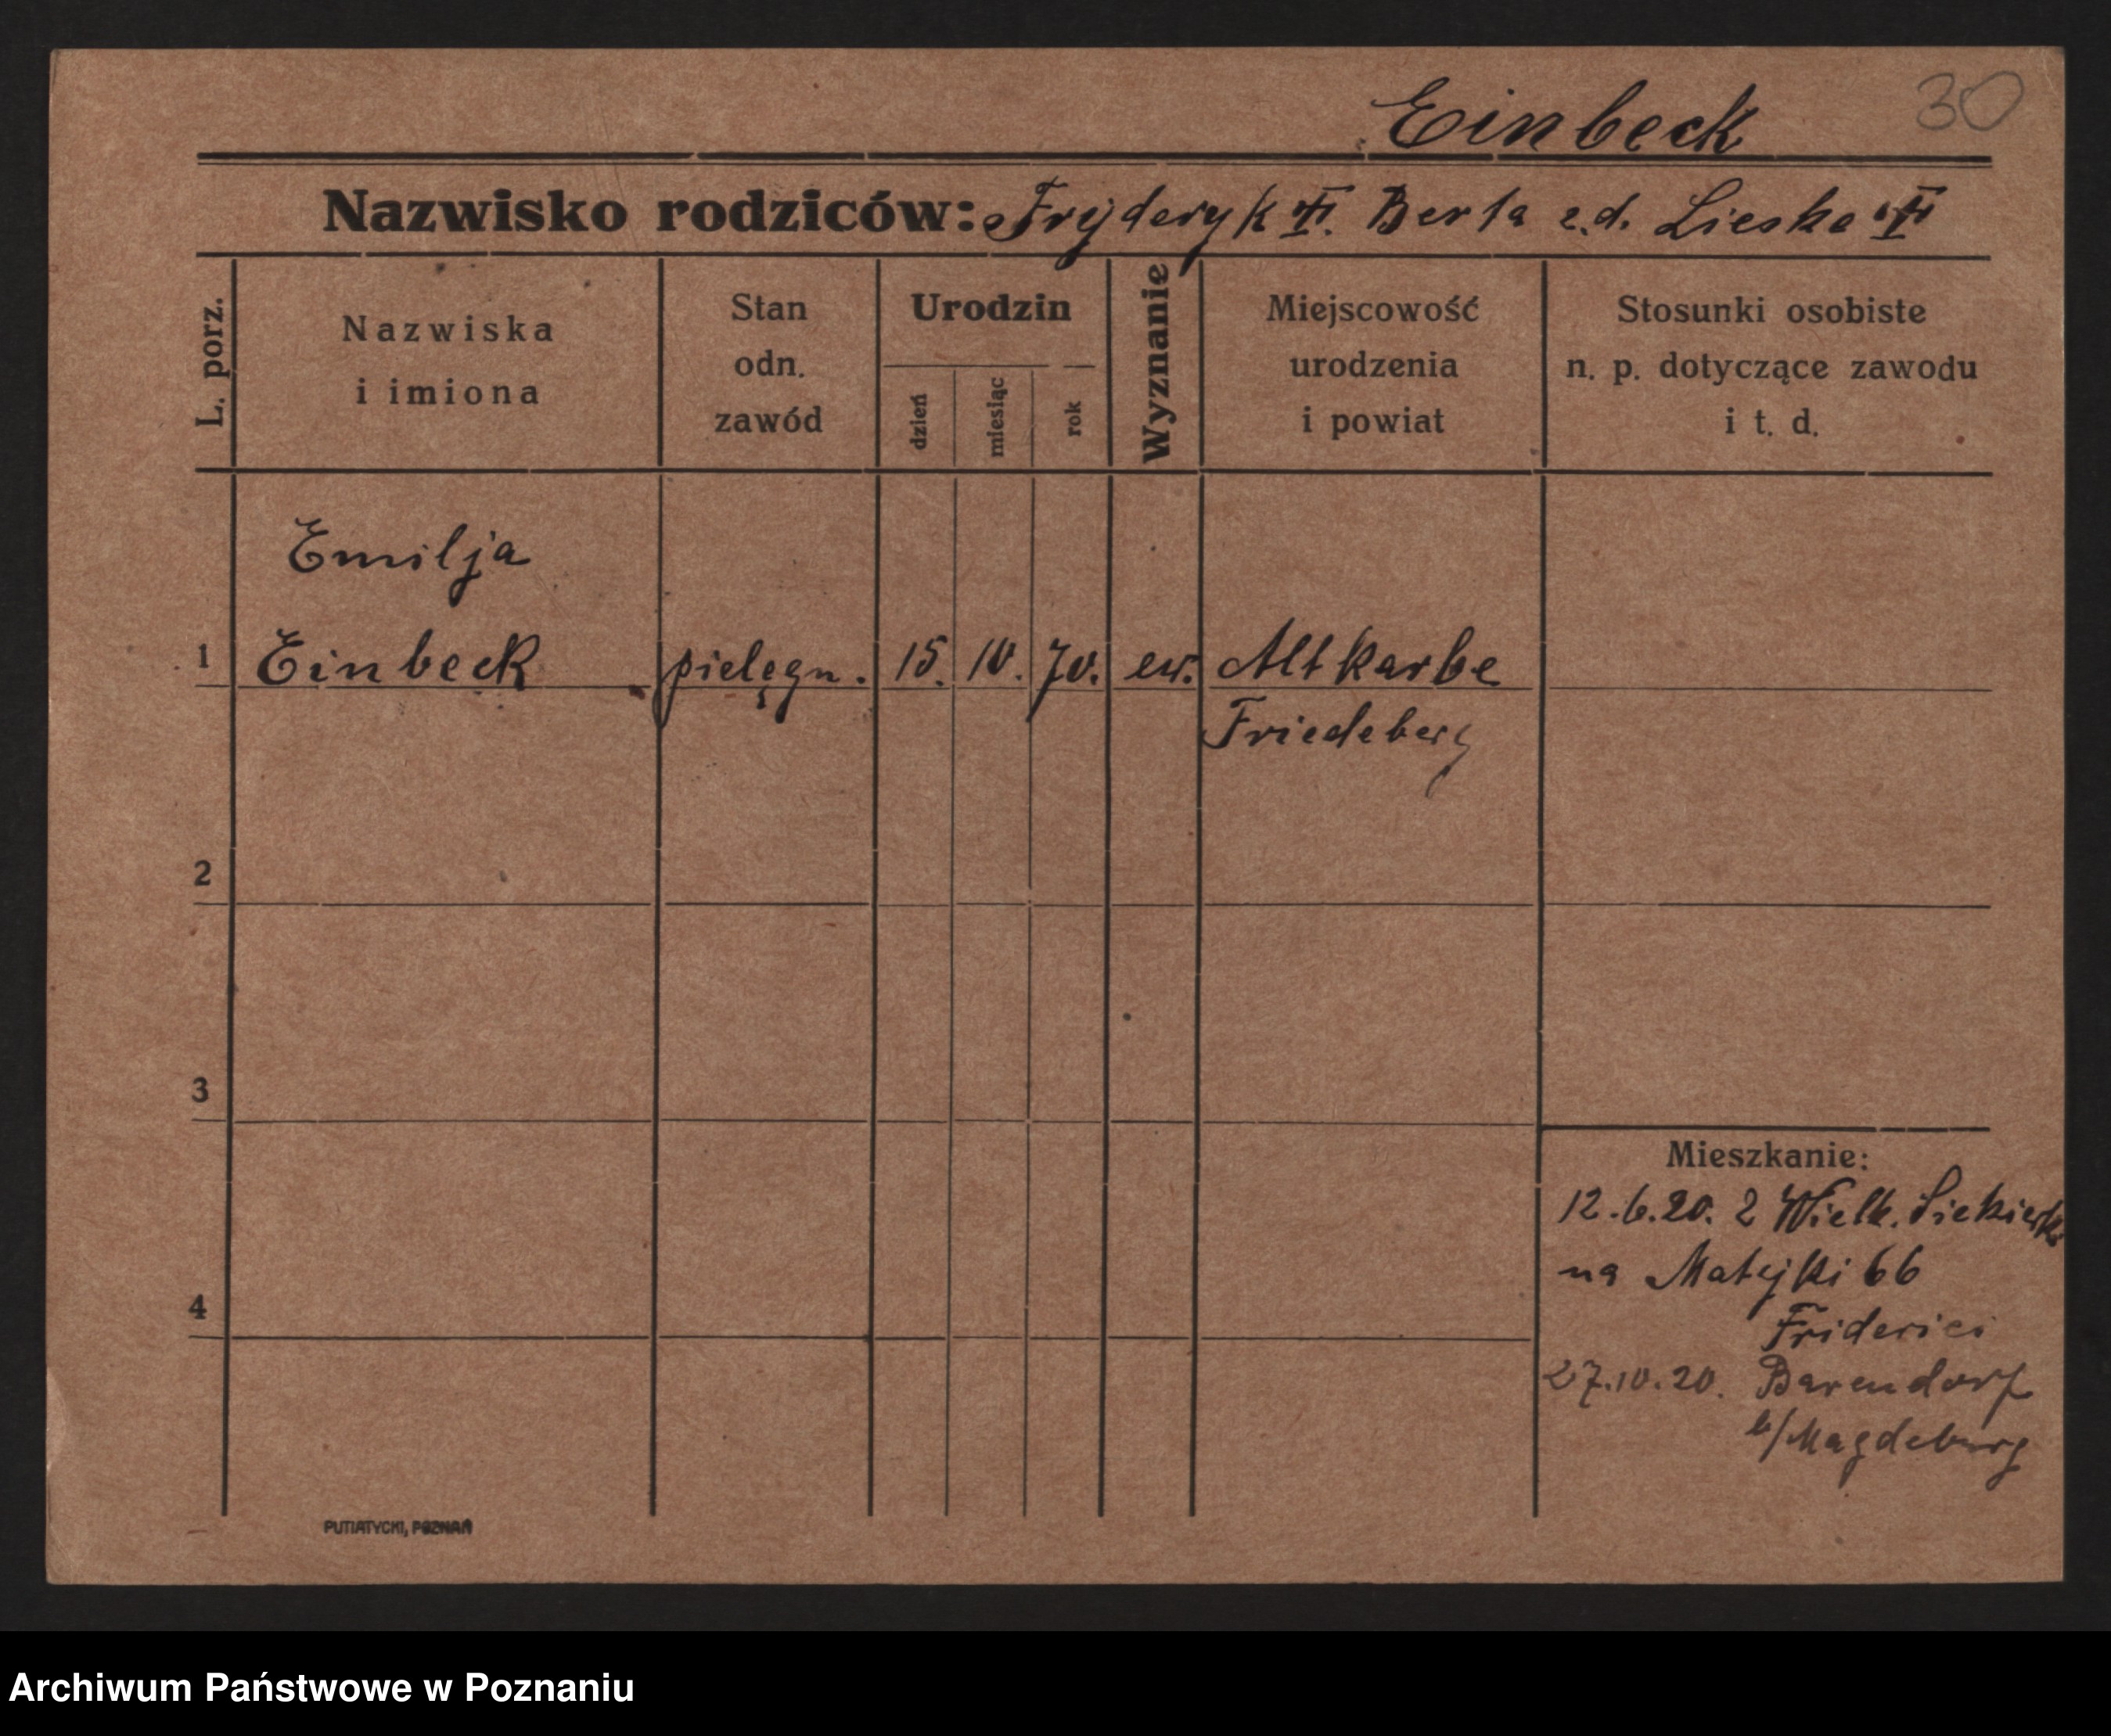 Einbeck 30
Nazwisko rodziców: Fryderyk Berta z.d. Lieske
L. porz.
Nazwiska
i imiona
Stan
odn.
zawód
Urodzin
dzień
miesiąc
rok
Wyznanie
Miejscowość
urodzenia
i powiat
Stosunki osobiste
n. p. dotyczące zawodu
i t. d.
Emilja
1 Einbeck pielęgn. 15. 10. 70. ew. Altkarbe
Friedeberg
2
3
4
Mieszkanie:
12.6.20. z Wielk. Siekierki
na Matejki 66
Friderici
27.10.20. Barendorf
b/Magdeburg
PUTIATYCKI, POZNAŃ
Archiwum Państwowe w Poznaniu